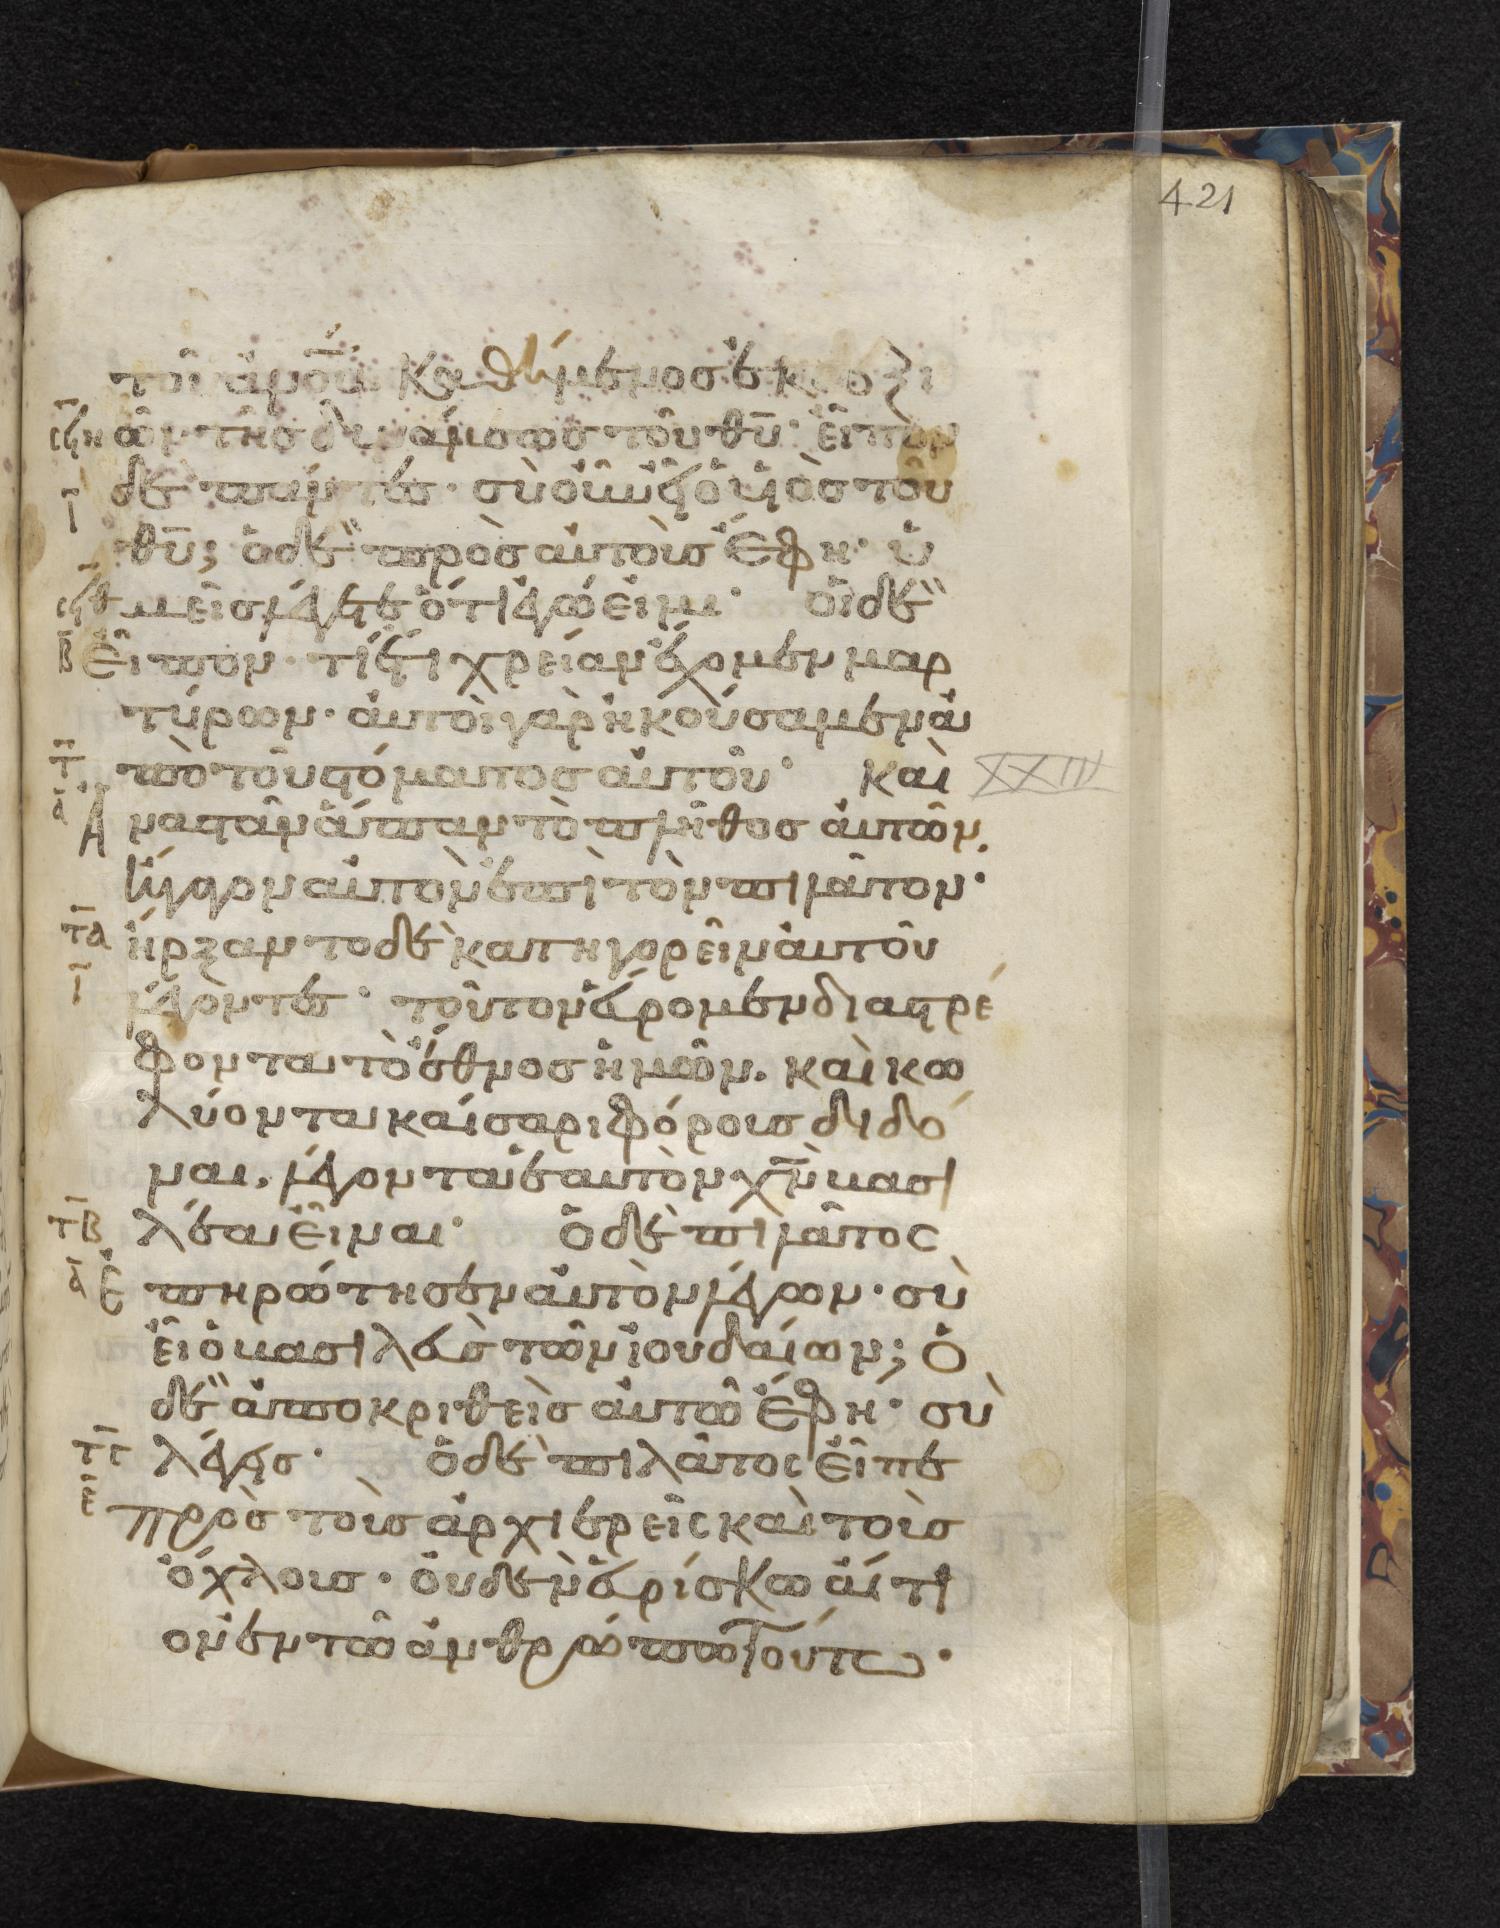 421
τοῦ ἀν̅ο̅υ̅ καθήμενος ἐκ δεξι
σϟη ῶν τῆς δυνάμεως τοῦ θ̅υ̅· εἶπον
ι δὲ πάντες· σὺ οὖν εἶ ὁ υἱὸς τοῦ
θ̅υ̅; ὁ δὲ πρὸς αὐτοὺς ἔφη· ὑ
σϟθ μεῖς λέγετε ὅτι ἐγώ εἰμι· οἱ δὲ
β εἶπον· τί ἔτι χρείαν ἔχομεν μαρ
τύρων· αὐτοὶ γὰρ ἠκούσαμεν ἀ
τ πὸ τοῦ στόματος αὐτοῦ· καὶ XXIII
α Ἀναστὰν ἅπαν τὸ πλῆθος αὐτῶν.
ἤγαγον αὐτὸν ἐπὶ τὸν πιλάτον·
τα ἤρξαντο δὲ κατηγορεῖν αὐτοῦ
ι λέγοντες· τοῦτον εὕρομεν διαστρέ
φοντα τὸ ἔθνος ἡμῶν. καὶ κω
λύοντα καίσαρι φόρους διδό
ναι. λέγοντα ἑαυτὸν χ̅ν̅ βασι
τβ λέα εἶναι· ὁ δὲ πιλάτος
α Ἐπηρώτησεν αὐτὸν λέγων· σὺ
εἶ ὁ βασιλεὺς τῶν ἰουδαίων; ὁ
δὲ ἀποκριθεὶς αὐτῶ ἔφη· σὺ
τγ λέγεις· ὁ δὲ πιλάτος εἶπε
πρὸς τοὺς ἀρχιερεῖς καὶ τοὺς
ὄχλους· οὐδὲν εὑρίσκω αἴτι
ον ἐν τῶ ἀνθρώπω τούτω·